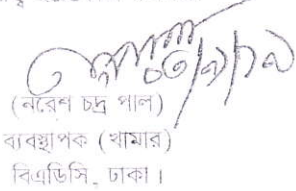 (নরেশ চন্দ্র পাল)
ব্যবস্থাপক (খামার)
বিএডিসি, ঢাকা।